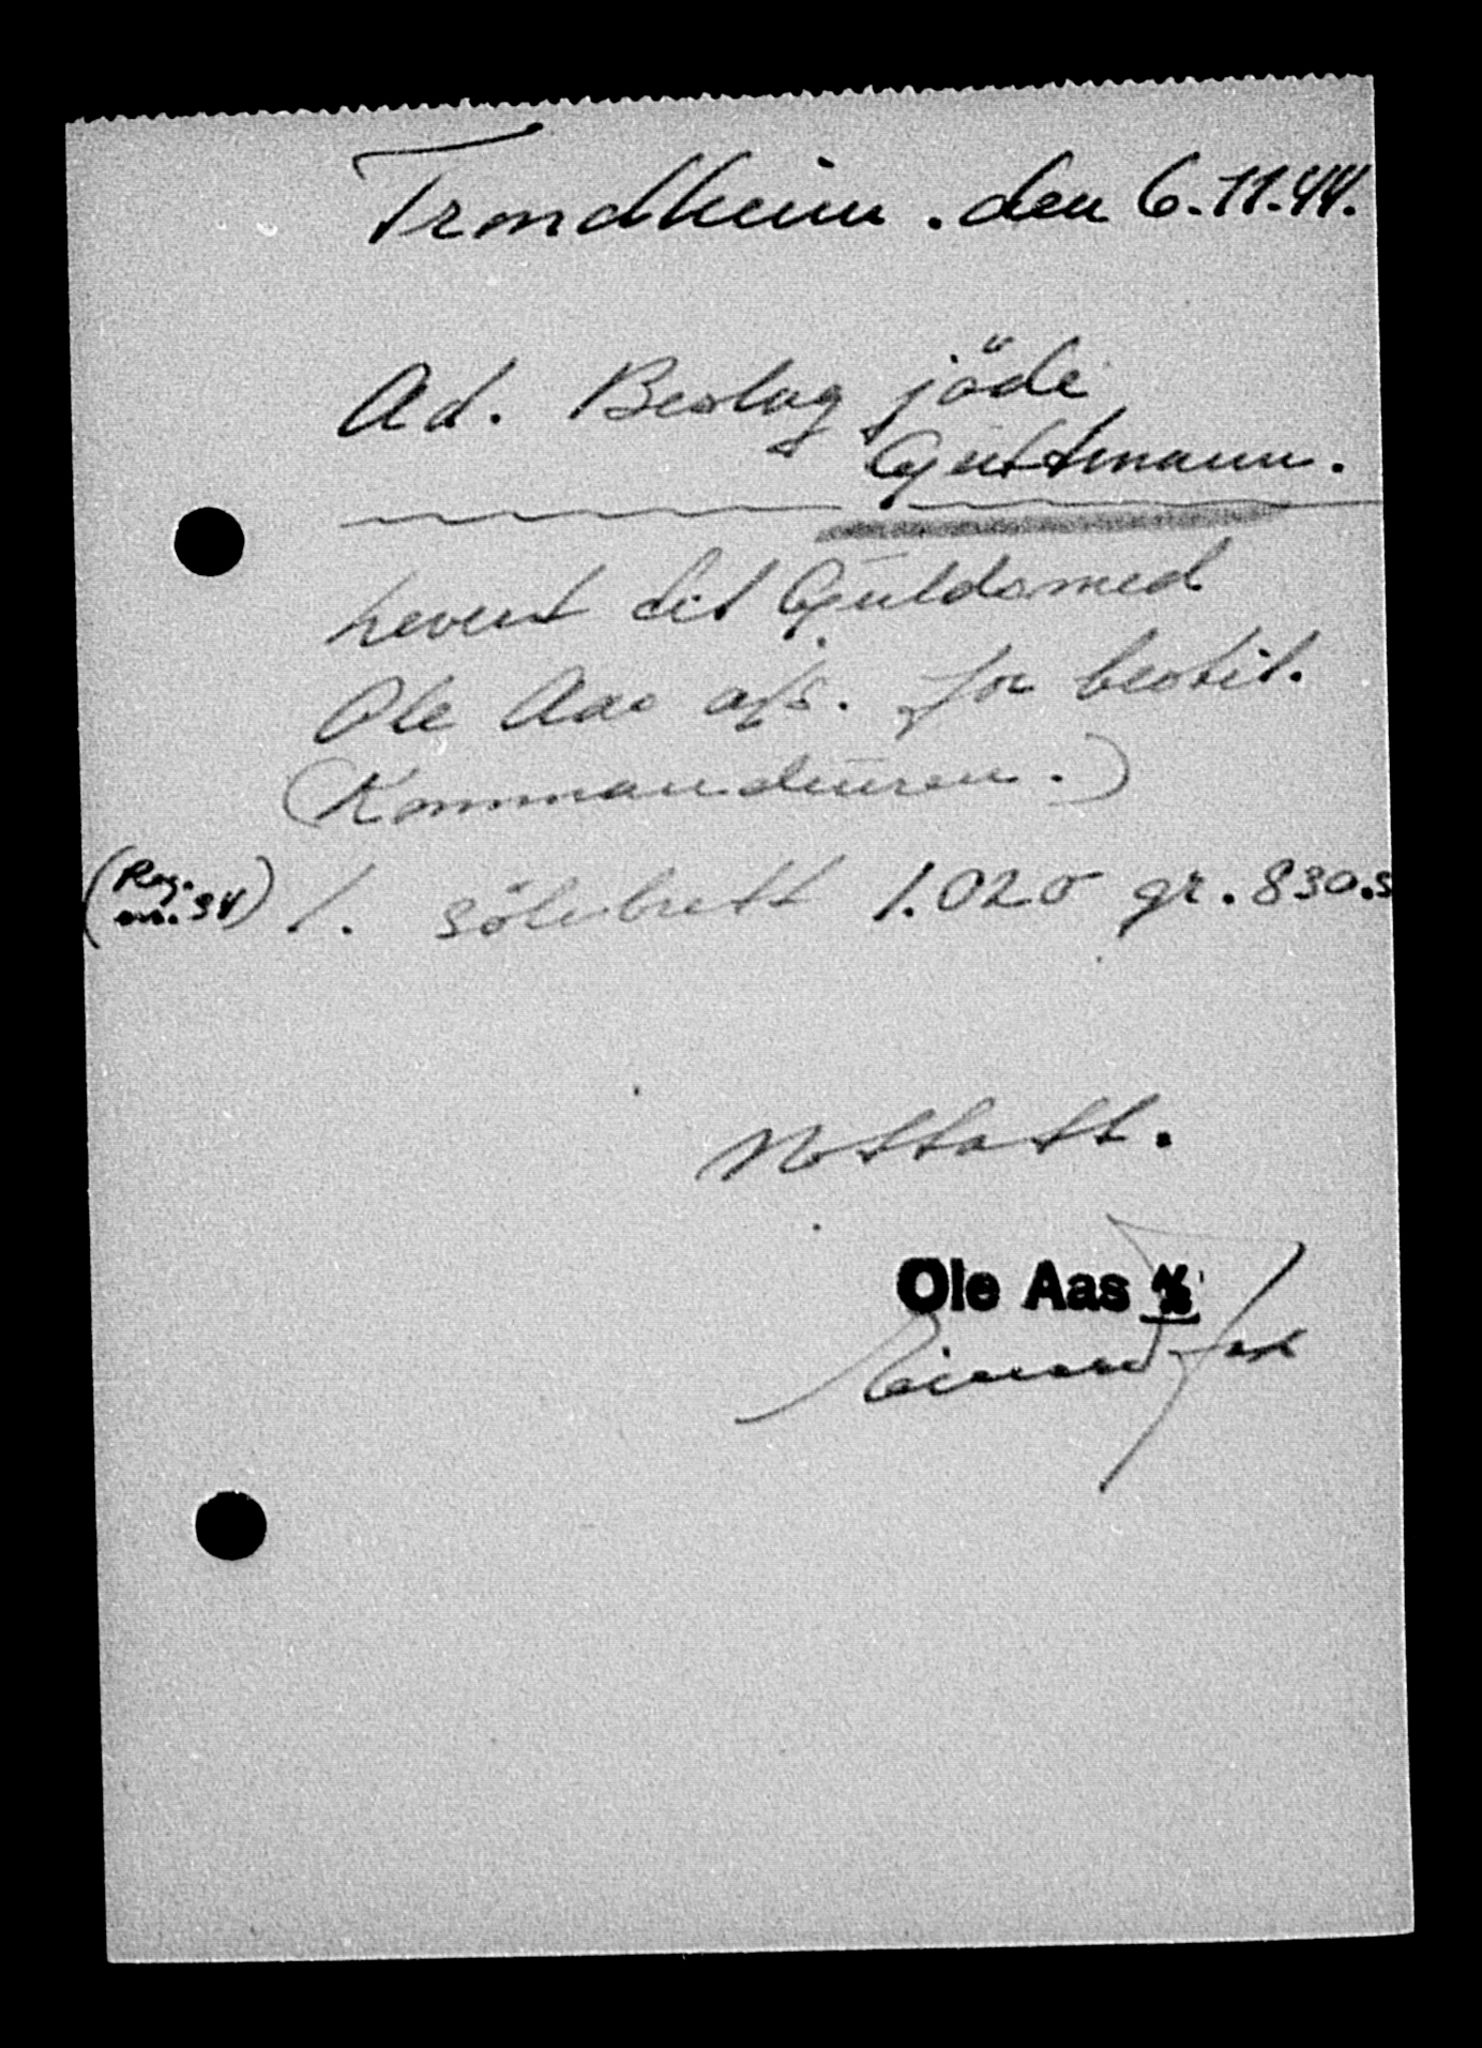 Trondheim. den 6.11.44.
Ad. Beslag jöde
Guttmann.
Levert til Guldsmed
Ole Aas a/s. for bestil.
(Kommandeuren.)
(Reg. nr. 34) 1. sölvbrett 1.020 gr. 830.s
Mottatt.
Ole Aas A/S
Einar